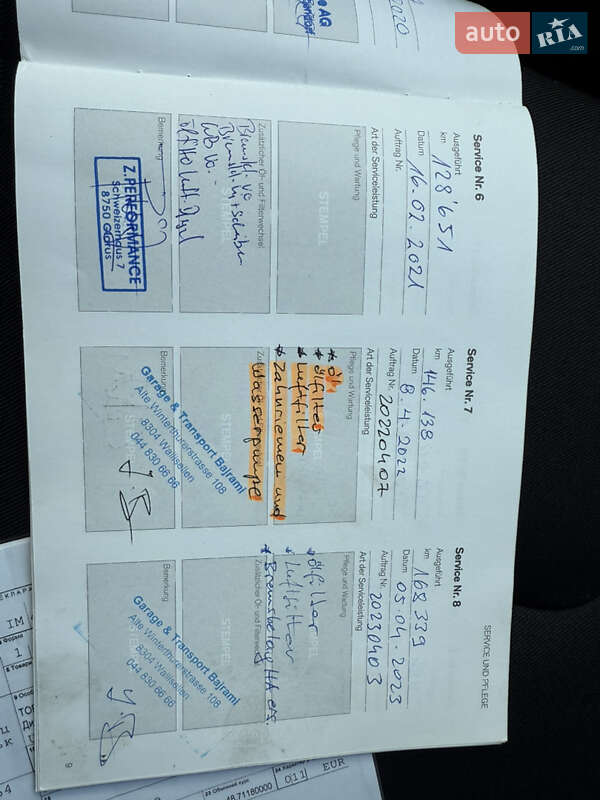 auto RIA .com
2020
SERVICE UND PFLEGE
Service Nr. 6
Ausgeführt
km 128'651
Datum 16.02.2021
Auftrag Nr.
Art der Serviceleistung
Pflege und Wartung
STEMPEL
Zusätzlicher Öl- und Filterwechsel
STEMPEL
Bemerkung
Z.PERFORMANCE
Schweizerhaus 7
8750 Glarus
Service Nr. 7
Ausgeführt
km 146.138
Datum 8.4.2022
Auftrag Nr. 20220407
Art der Serviceleistung
Pflege und Wartung
* Öl
* ölfilter
* Luftfilter
* Zahnriemen und
Wasserpumpe
STEMPEL
Bemerkung
Garage & Transport Bajrami
Alte Winterthurerstrasse 108
8304 Wallisellen
044 830 66 66
Service Nr. 8
Ausgeführt
km 168339
Datum 05.04.2023
Auftrag Nr. 20230403
Art der Serviceleistung
Pflege und Wartung
* ölfilter
* Luftfilter
* Bremsbelag HA
Zusätzlicher Öl- und Filterwechsel
STEMPEL
Bemerkung
Garage & Transport Bajrami
Alte Winterthurerstrasse 108
8304 Wallisellen
044 830 66 66
9
IM
1
48.71180000
011
EUR